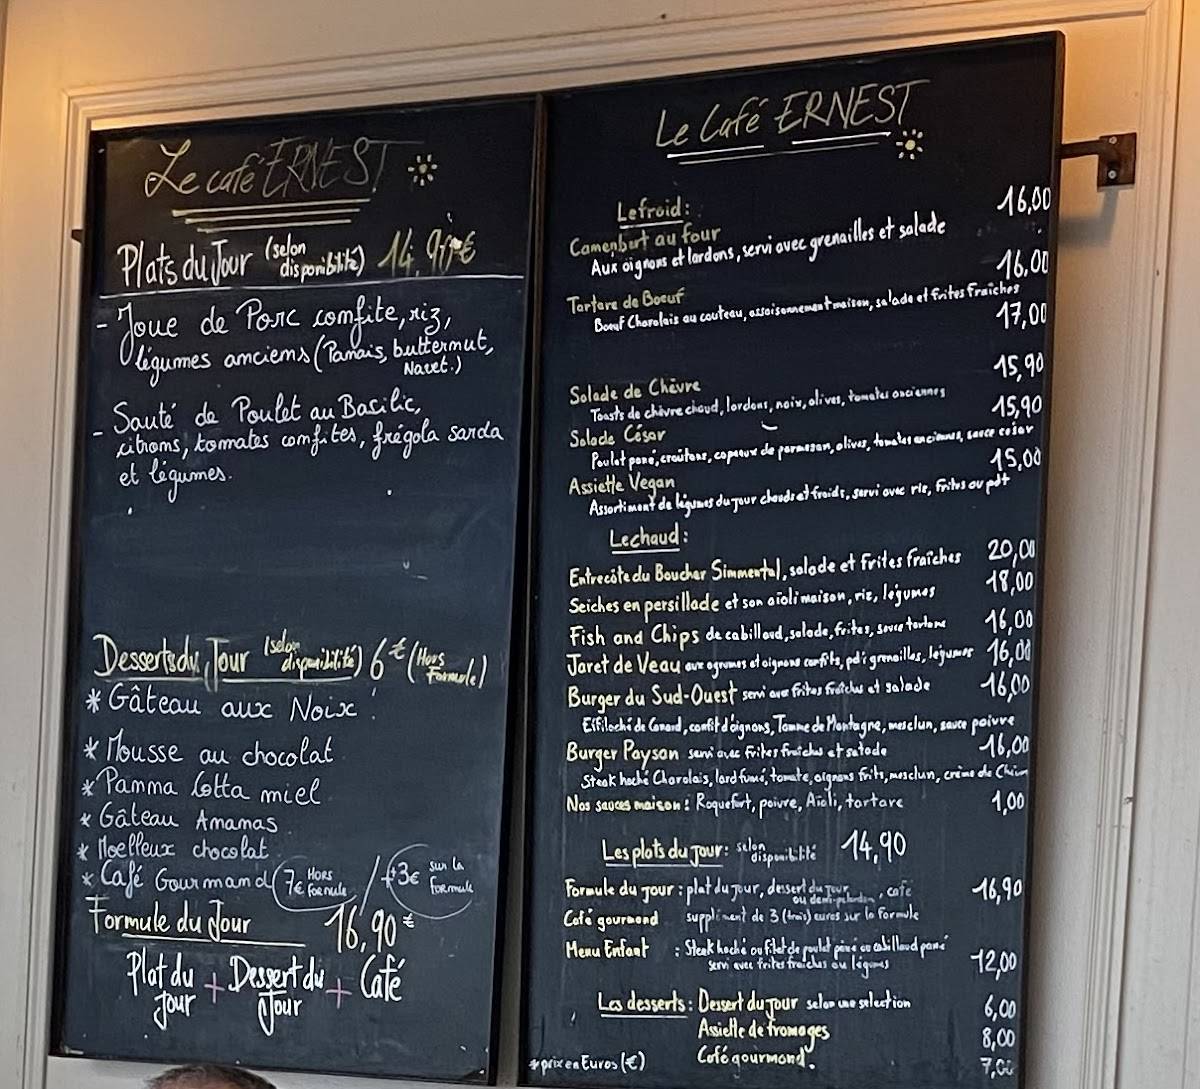 Le café ERNEST
Plats du Jour (selon disponibilité) 14,90€
- Joue de Porc comfite, riz,
légumes anciems (Panais, butternut,
Navet.)
- Sauté de Poulet au Basilic,
citroms, tomates comfites, frégola sarda
et légumes.
Desserts du Jour (selon disponibilité) 6€ (Hors Formule)
* Gâteau aux Noix.
* Mousse au chocolat
* Panma Cotta miel
* Gâteau Amamas
* Moelleux chocolat
* Café Gourmamd (7€ HORS formule / +3€ sur la formule
Formule du Jour 16,90€
Plat du Jour + Dessert du Jour + Café
Le Café ERNEST
Lefroid:
Camembert au four 16,00
Aux oignons et lardons, servi avec grenailles et salade
Tartare de Boeuf 16,00
Boeuf Charolais au couteau, assaisonnement maison, salade et frites fraîches
17,00
Salade de Chèvre 15,90
Toasts de chèvre chaud, lardons, noix, olives, tomates anciennes
Salade César 15,90
Poulet pané, croûtons, copeaux de parmesan, olives, tomates anciennes, sauce césar
Assiette Vegan 15,00
Assortiment de légumes du jour chauds et froids, servi avec riz, frites ou pdt
Lechaud:
Entrecôte du Boucher Simmental, salade et frites fraîches 20,00
Seiches en persillade et son aïoli maison, riz, légumes 18,00
Fish and Chips de cabillaud, salade, frites, sauce tartare 16,00
Jaret de Veau aux agrumes et oignons confits, pdt grenailles, légumes 16,00
Burger du Sud-Ouest servi avec frites fraîches et salade 16,00
Effiloché de Canard, confit d'oignons, Tomme de Montagne, mesclun, sauce poivre
Burger Paysan servi avec frites fraîches et salade 16,00
Steak haché Charolais, lard fumé, tomate, oignons frits, mesclun, crème de
Nos sauces maison: Roquefort, poivre, Aïoli, tartare 1,00
Les plats du jour: selon disponibilité 14,90
Formule du jour: plat du jour, dessert du jour, café 16,90
Café gourmand supplément de 3 (trois) euros sur la formule
Menu Enfant : Steak haché ou filet de poulet pané ou cabillaud pané
servi avec frites fraîches ou légumes 12,00
Les desserts: Dessert du jour selon une sélection 6,00
Assiette de fromages 8,00
Café gourmand. 7,00
* prix en Euros (€)